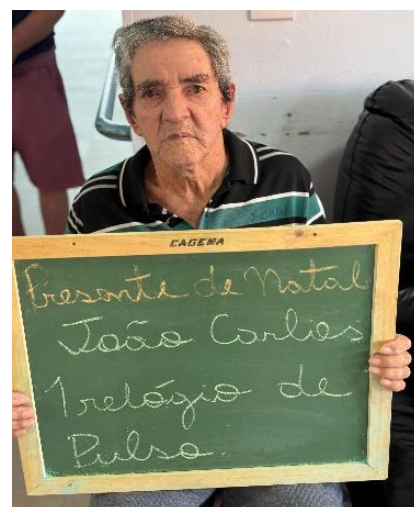 CAGEMA
Presente de Natal
João Carlos
1 relógio de
Pulso.